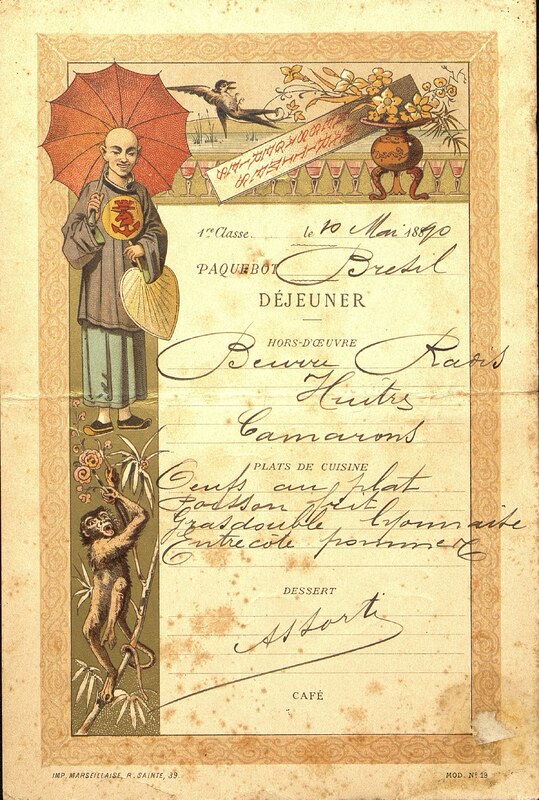 1re Classe. le 10 Mai 1890
PAQUEBOT Bresil
DÉJEUNER
HORS-D'ŒUVRE
Beurre Radis
Huitres
Camarons
PLATS DE CUISINE
Oeufs au plat
Poisson frit
Grasdouble lyonnaise
Entrecôte pommes
DESSERT
Assorti
CAFÉ
IMP. MARSEILLAISE, R. SAINTE, 39.
MOD. No 19